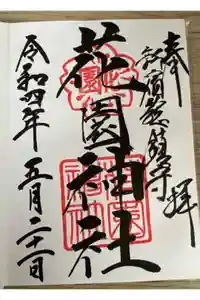 奉拝
新宿総鎮守
花園神社
令和四年 五月二十一日